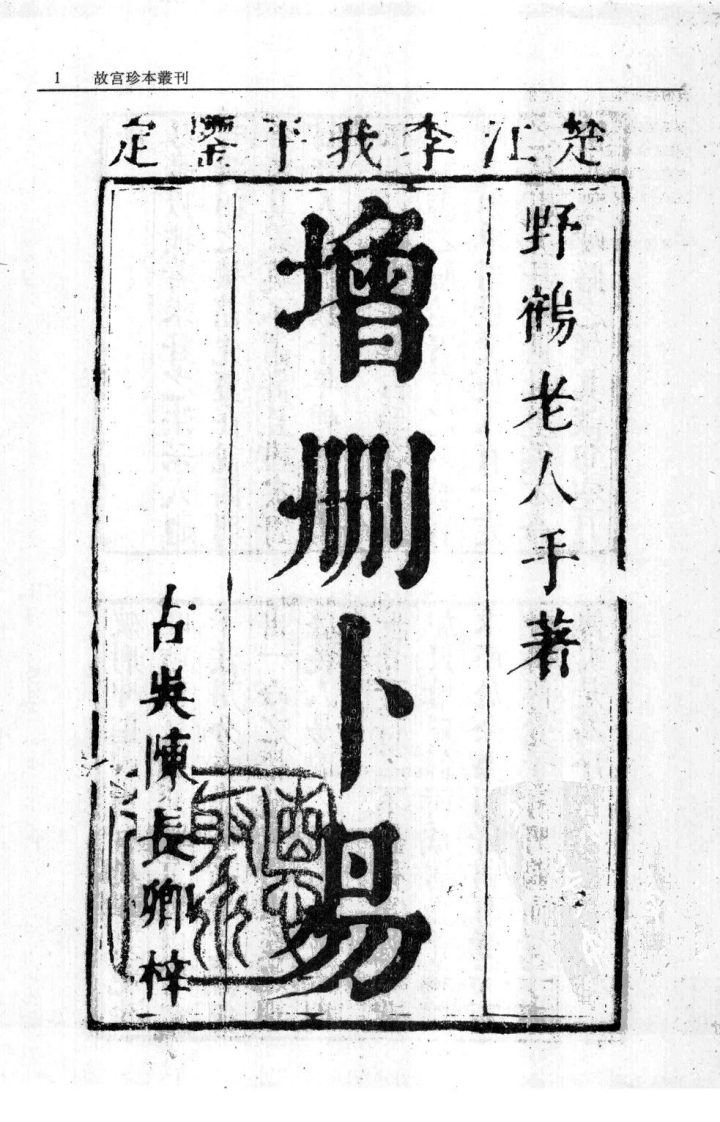 1 故宫珍本叢刊
楚江李我平鑒定
野鶴老人手著
增删卜易
古吳陳長卿梓